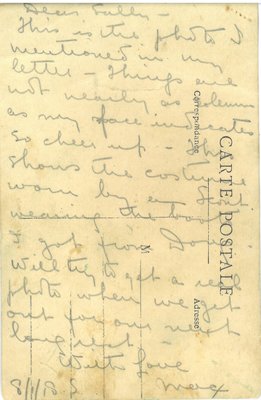 Dear Sally -
This is the photo I
mentioned in my
letter - Things are
not nearly as solemn
as my face indicates
so cheer up -
shows the costume
worn by
wearing the
I got from
Will try to get a real
photo when we get
out for our next
long rest -
With love
8/1/18
CARTE POSTALE
Correspondance
Adresse
M